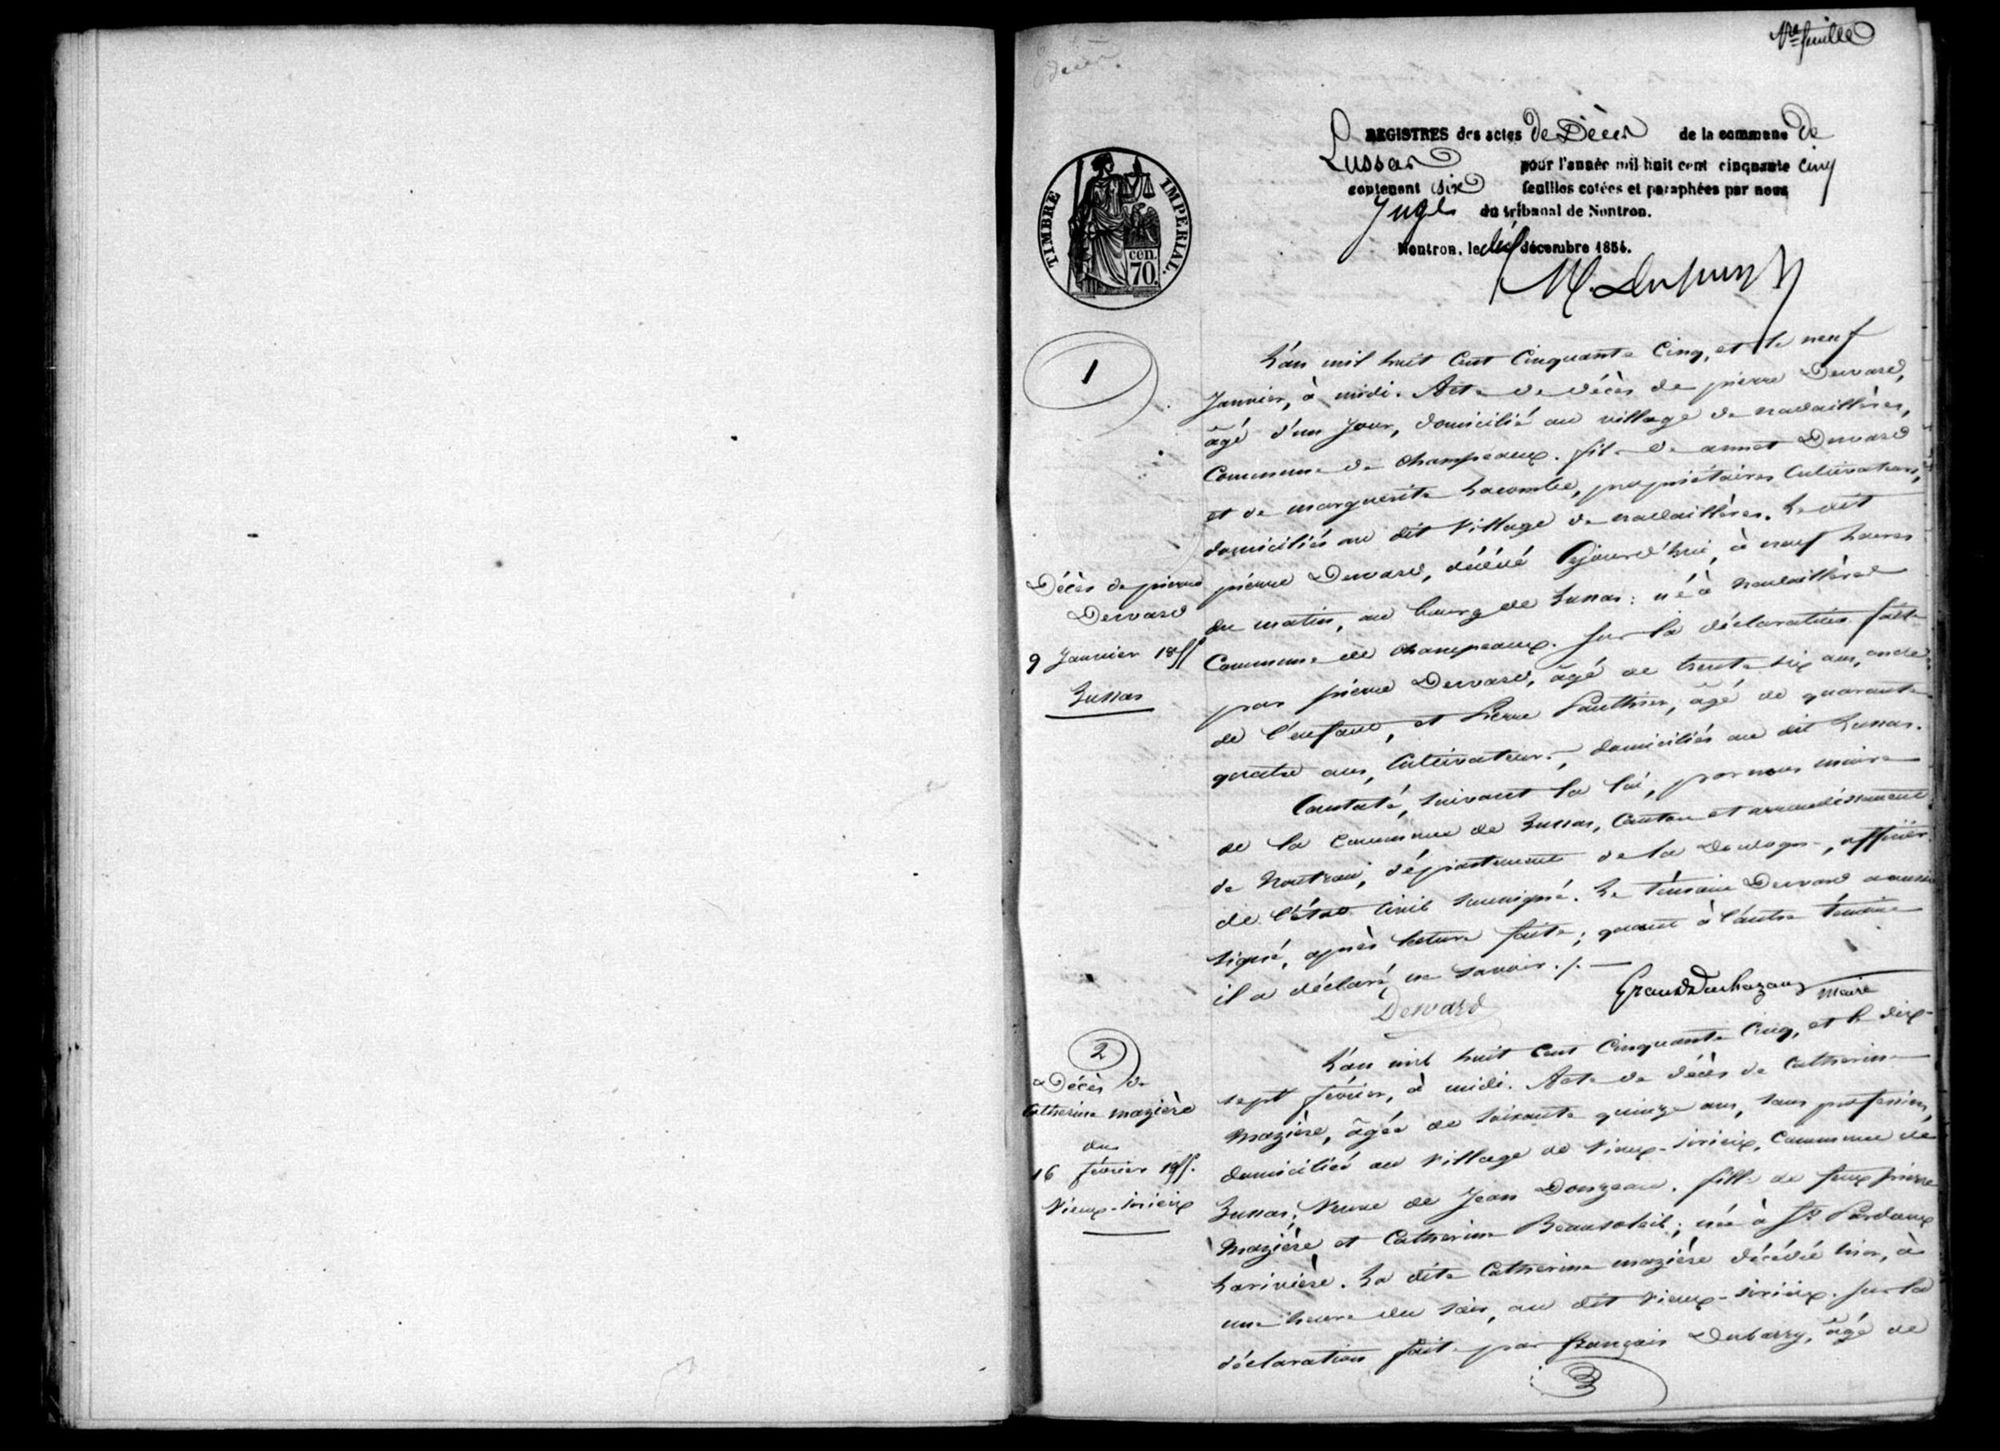 1re feuille
décès
REGISTRES des actes de Décès de la commune de
Lussas pour l'année mil huit cent cinquante cinq
contenant six feuilles cotées et paraphées par nous
Juge du tribunal de Nontron.
Nontron, le dix décembre 1854.
TIMBRE IMPÉRIAL.
70 cen.
1
L'an mil huit cent cinquante cinq, et le neuf
Janvier, à midi. Acte de décès de pierre Dervard,
âgé d'un Jour, domicilié au village de navaillères,
Commune de Champeaux. fils de annet Dervard
et de marguerite Lacombe, propriétaires Cultivateurs,
domiciliés au dit village de navaillères. Le dit
pierre Dervard, décédé Ajourd'hui, à neuf heures
du matin, au bourg de Lussas : né à navaillères
Commune de Champeaux. Sur la déclaration faite
par pierre Dervard, âgé de trente six ans, oncle
de l'enfant, et Pierre Gauthier, âgé de quarante
quatre ans, Cultivateurs, domiciliés au dit Lussas.
Constaté, suivant la loi, par nous maire
de la Commune de Lussas, Canton et arrondissement
de Nontron, département de la Dordogne, officier
de l'état Civil soussigné. Le témoin Dervard a aussi
signé, après lecture faite ; quant à l'autre témoin
il a déclaré ne savoir. /. —
Décès de pierre
Dervard
9 Janvier 1855
Lussas
Dervard
maire
2
Décès de
Catherine mazière
du
16 février 1855.
Vieux-sirieix
L'an mil huit Cent Cinquante Cinq, et le dix-
sept février, à midi. Acte de décès de Catherine
Mazière, âgée de soixante quinze ans, sans profession,
domiciliée au village de Vieux-sirieix, Commune de
Lussas ; Veuve de Jean Donzeau. fille de feux pierre
Mazière et Catherine Beausoleil ; née à St Pardoux
Larivière. La dite Catherine mazière décédée hier, à
une heure du soir, au dit Vieux-sirieix. Sur la
déclaration faite par françois Dubarry, âgé de